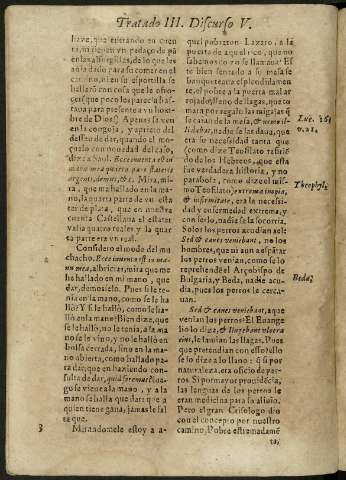 Tratado III. Discurso V.
llave, que
ni tienen vn pedaço de pã
en las alforgillas, de lo que les
auia dado para so comer en el
camino, ni en su esportilla se
hallarõ con cosa que le ofre-
çer (que poco les parece abas-
taua para presente a vn hom-
bre de Dios.) Apenas se ven
en la congoja, y aprieto del
desseo de dar, quando el mo-
ço
dize a Saul. Ecce inuenta est in
manu mea quarta pars stateris
argenti, demus, &c. Mira, mi-
ra, que ma hallado en la ma-
no, la quarta parte de vn esta
ter de plata, que en nuestra
cuenta Castellana el estater
valia quatro reales y la quar
ta parte era vn real.
Considero el modo del mu
chacho. Ecce inuenta est in ma
nu mea, albricias, mira que me
he hallado en mi mano, que
dar, demosselo. Pues si le te-
nia en la mano, como se le ha
llò? Y si le hallò, como se ha-
llò en la mano? Bien dize, que
se le hallò, no le tenia, a la ma
no se le vino, y no le hallò en
bolsa cerrada, sino en la ma-
no abierta, como hallado pa-
ra dar, que en haziendo con-
sulta de dar,
go se viene a la mano, y a la
mano se halla que dar: que a
quien tiene gana, jamas le fal
ta que.
3 Marandomele estoy a a-
quel pobreton Lazaro, a la
puerta de aquel rico, que no
sabemos como se llamaua? El
te bien sentado a su mesa se
banqueteaua esplendidamen
te, el pobre a la puerta mal ar
rojado, lleno de llagas, que to
maua por regalo las migajas q̃
se cayan de la mesa, & nemo il-
li dabat, nadie se las daua, que
era la necessidad tanta que
(como dize Teofilato refirié
do de los Hebreos, que esta
fue verdadera historia, y no
parabola, como dize el mis-
mo Teofilato) extrema inopia,
& infirmitate, era la necessi-
dad y enfermedad extrema, y
con serlo, nadie se la socorria.
Solos los perros acudian a el:
Sed & canes veniebant, no los
hombres, que ni aun a espãtar
los perros venian, como se lo
reprehende el Arçobispo de
Bulgaria, y Beda, nadie acu-
dia, pues los perros le cerca-
uan.
Sed & canes veniebant, a que
venian los perros? El Euange
lio lo dize, & lingebant vlcera
eius, le lamian las llagas. Pues
que pretendian con esso? ello
se lo dize a lo llano: q̃ si por
naturaleza, era oficio de per-
ros. Si por mayor prouidécia,
las lenguas de los perros le
eran medicina para su aliuio.
Pero el gran Crisologo dio
con el concepto por nuestro
camino, Pobre estremadamé
te,
Luc. 16.
v. 21.
Theophyl.
Beda.